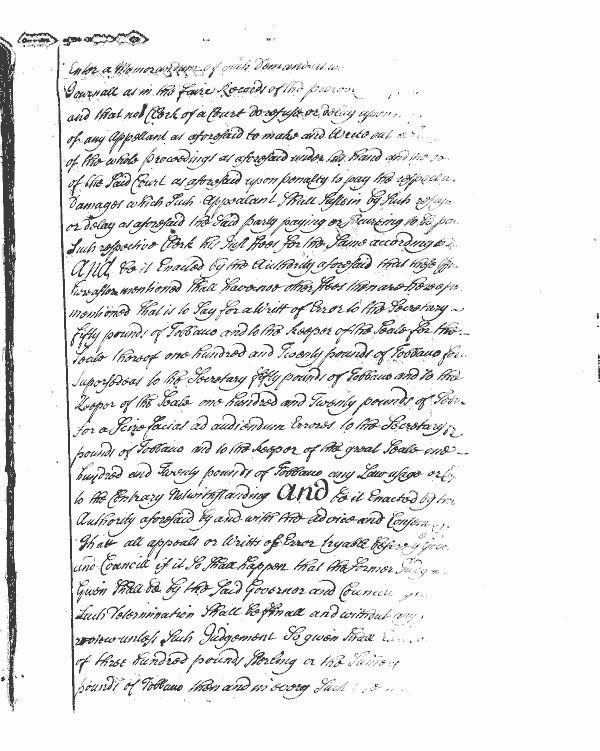 Enter a Memorandum of such Demand
Journall as in the Faire Records of the
and that no Clerk of a Court do refuse or delay upon
of any Appellant as aforesaid to make and Write out a
of the whole proceedings as aforesaid under his hand and
of the Said Court as aforesaid upon penalty to pay the
Damages which Such Appealant Shall Sustein by Such
or delay as aforesaid the Said party paying or Securing to be
Such respective Clerk his Just Fees for the Same according
And be it Enacted by the Authority aforesaid that these
hereafter mentioned Shall have noe other Fees then are
mentioned that is to Say for a Writt of Error to the Secretary
fifty pounds of Tobbaco and to the Keeper of the Seale for the
Seale thereof one hundred and Twenty pounds of Tobbaco for
Supersedeas to the Secretary fifty pounds of Tobbaco and to the
Keeper of the Seale one hundred and Twenty pounds of
for a Scire facias ad audiendum Errores to the Secretary
pounds of Tobbaco and to the Keeper of the great Seale one
hundred and Twenty pounds of Tobbaco any Law usage or
to the Contrary Notwithstanding And be it Enacted by the
Authority aforesaid by and with the advice and Consent
That all appeals or Writts of Error tryable before
and Councill if it So Shall happen that the former
Given Shall be by the Said Governor and Councill
Such Determination Shall be finall and without any
review unless Such Judgement So given Shall
of three hundred pounds Sterling or the
pounds of Tobbaco then and in every Such